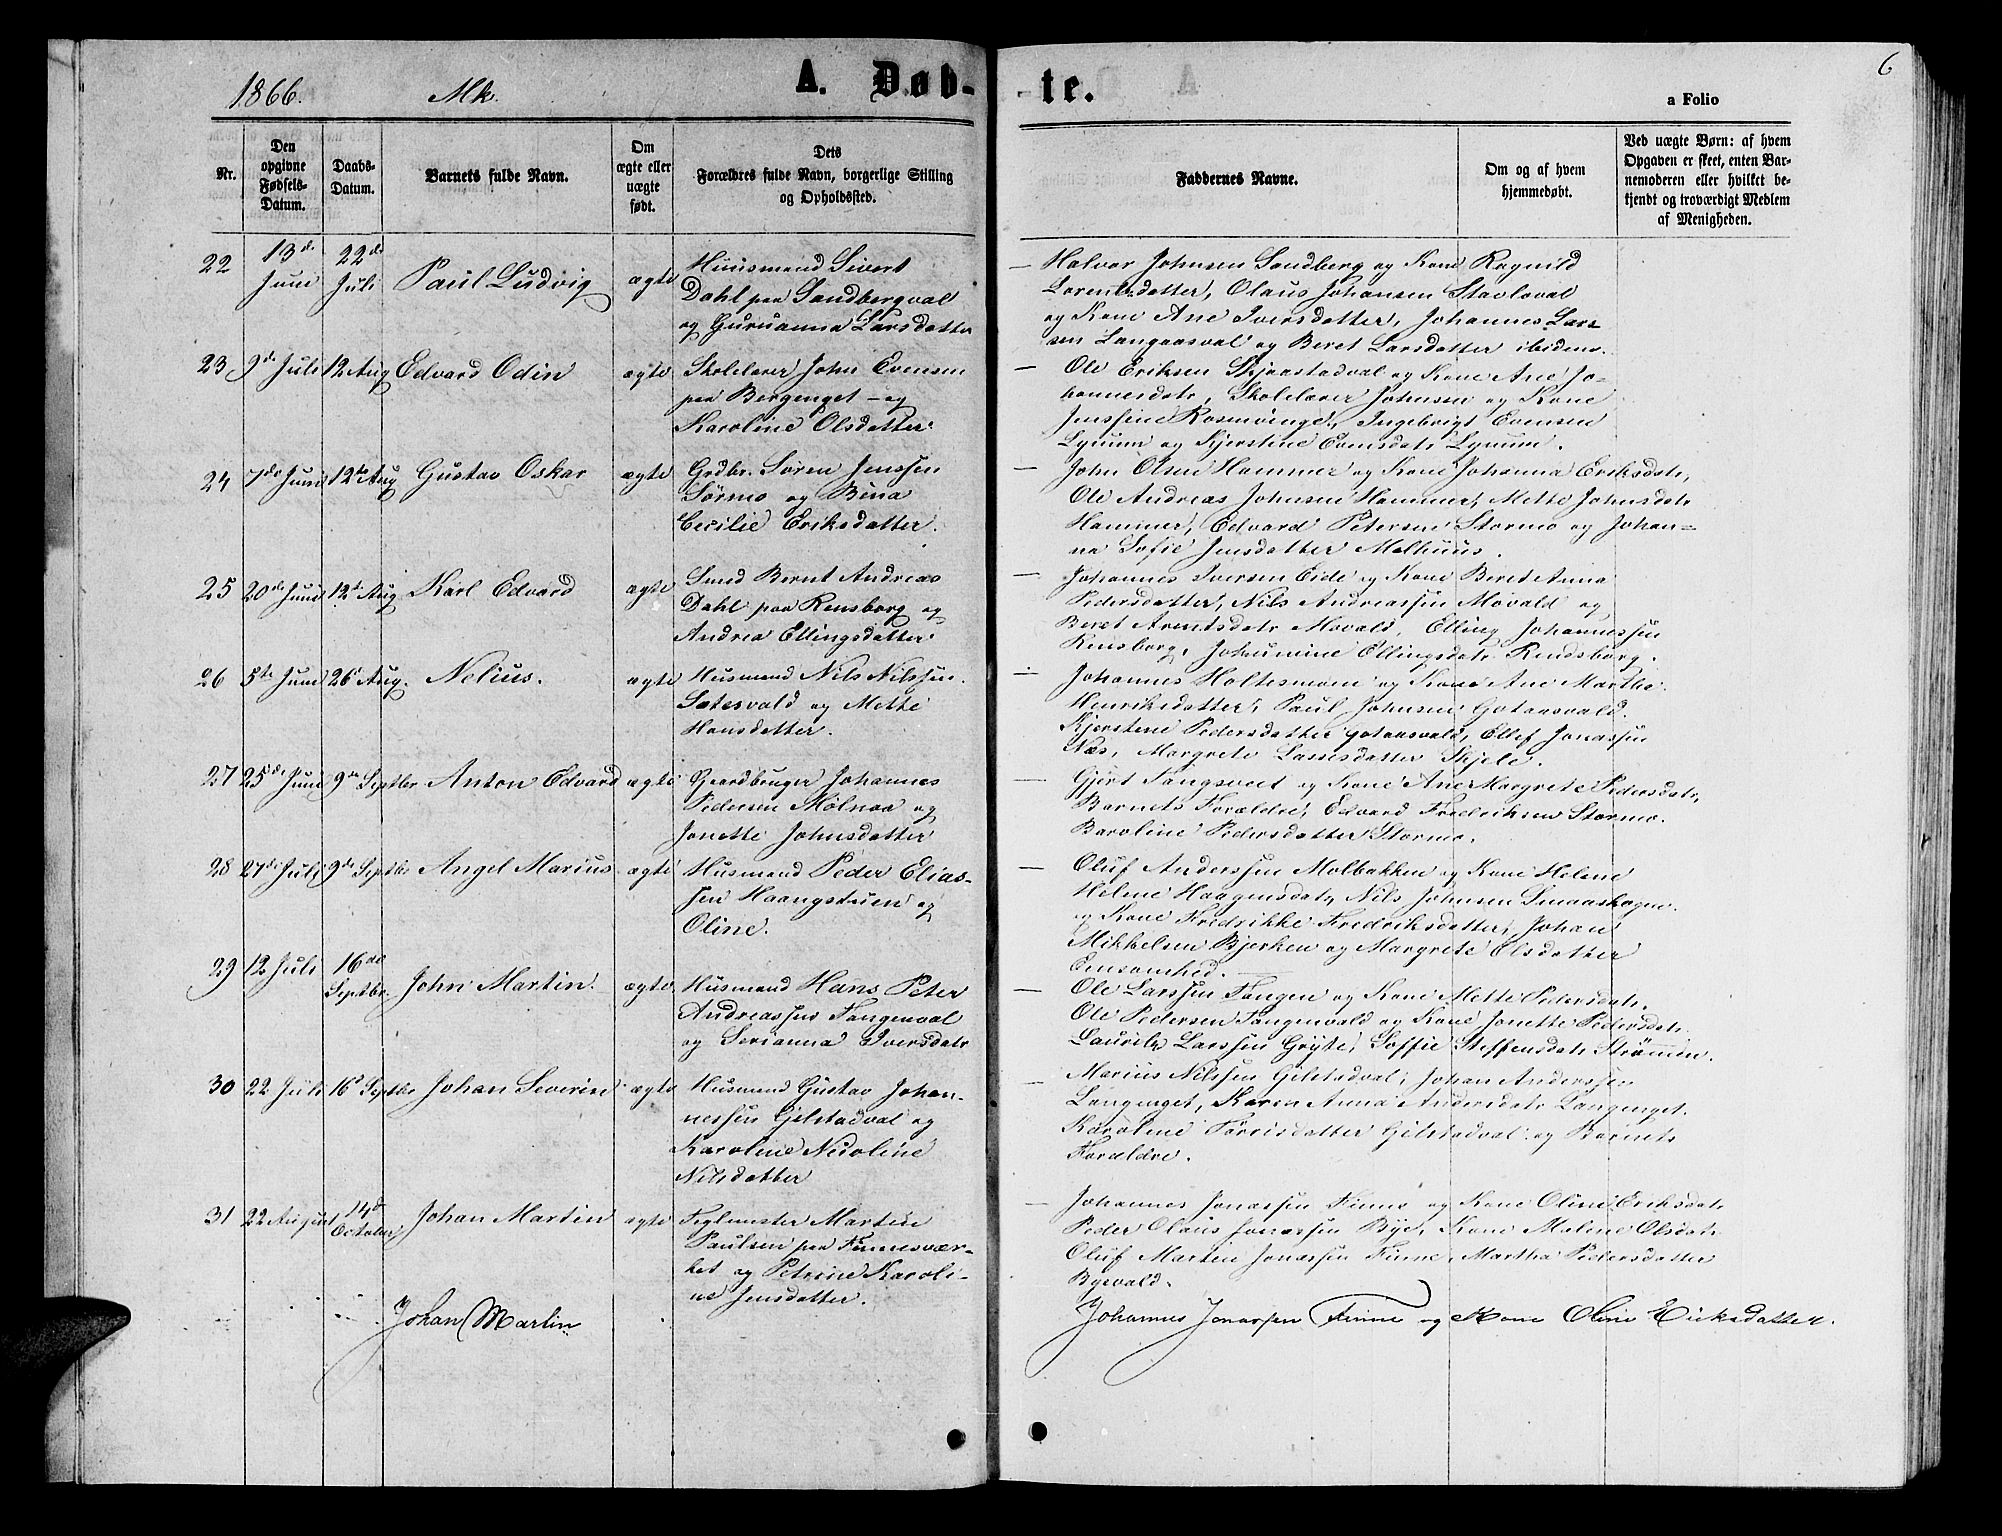 1866.
Mk.
A. Døb-
te.
6
a Folio
Nr.
Den
opgivne
Fødsels-
Datum.
Daabs-
Datum.
Barnets fulde Navn.
Om
ægte eller
uægte
født.
Dets
Forældres fulde Navn, borgerlige Stilling
og Opholdssted.
Faddernes Navne.
Om og af hvem
hjemmedøbt.
Ved uægte Børn: af hvem
Opgaven er skeet, enten Bar-
nemoderen eller hvilket be-
kjendt og troværdigt Medlem
af Menigheden.
22
13de
Juni
22de
Juli
Paul Ludvig
ægte
Huusmand Sivert
Dahl paa Sandbergval
og Guruanna Larsdatter
Halvor Johnsen Sandberg og Kone Ragnild
Lorentsdatter, Olaus Johansen Stavloval
og Kone Ane Iversdatter, Johannes Lars-
sen Langaasval og Beret Larsdatter ibidem.
23
9de Juli
12 Aug
Edvard Odin
ægte
Skolelærer John Evensen
paa Bergenget - og
Karoline Olsdatter.
Ole Eriksen Skjaastadval og Kone Ane Jo-
hannesdatr, Skolelærer Johnsen og Kone
Jensine Rosenvinge, Ingebrigt Evensen
Lynum og Kjerstine Evensdatr Lynum.
24
7de Juni
12te Aug
Gustav Oskar
ægte
Grdbr. Søren Jenssen
Sørmo og Bina
Cecilie Eriksdatter.
John Olsen Hammer og Kone Johanna Eriksdatr,
Ole Andreas Johnsen Hammer, Mette Johnsdatr
Hammer, Edvard Petersen Stormo og Johan-
na Sofie Jensdatter Melhuus.
25
20de Juni
12te Aug
Karl Edvard
ægte
Smed Bernt Andreas
Dahl paa Rensborg og
Andrea Ellingsdatter.
Johannes Iversen Eide og Kone Beret Anna
Pedersdatter, Nils Andreassen Movald og
Beret Arentsdatr Movald, Elling Johannessen
Rensborg, Johannine Ellingsdatr Rendsborg.
26
5te Juni
26 Aug.
Nelius.
ægte
Husmand Nils Nilssen
Sætesvald og Mette
Hansdatter.
Johannes Holtesmoen og Kone Ane Martha
Henriksdatter, Paul Johnsen Gotaasvald.
Kjerstine Pedersdatter Gotaasvald, Ellef Jonassen
Næs, Margrete Lassesdatter Skjele.
27
25de Juni
9de Septbr
Anton Edvard
ægte
Gaardbruger Johannes
Pedersen Molnaa og
Jonette Johnsdatter
Gjert Tangsveet og Kone Ane Margrete Pedersdatr,
Barnets Forældre, Edvard Fredriksen Stormo.
Baroline Pedersdatter Stormo.
28
27de Juli
9de Septbr
Angel Marius
ægte
Husmand Peder Elias-
sen Haangstuen og
Oline.
Oluf Anderssen Molbakken og Kone Helene
Helene Haagensdatr, Nils Johnsen Smaaskogen.
og Kone Fredrikke Fredriksdatter, Johan
Mikkelsen Bjerken og Margrete Olsdatter
Eensomhed.
29
12 Juli
16de
Septbr.
John Martin.
ægte
Husmand Hans Peter
Andreassen Tangenval
og Serianna Iversdatr
Ole Larssen Tangen og Kone Mette Pedersdatr.
Ole Pedersen Tangenvald og Kone Jonette Pedersdatr
Laurits Larssen Gryte, Soffie Steffensdatr Strømmen.
30
22 Juli
16d Septbr
Johan Severin
ægte
Husmand Gustav Johan-
nessen Gjelstadval og
Karoline Nicoline
Nilsdatter
Marius Nilssen Gilstadval, Johan Anderssen
Langenget, Karen Anna Andersdatr Langenget.
Karoline Torrisdatter Gilstadval og Barnets
Forældre.
31
22 August
14d
October
Johan Martin
ægte
Teglmester Martin
Paulsen paa Finnesvær-
ket og Petrine Karoli-
ne Jensdatter.
Johannes Jonassen Finne og Kone Oline Eriksdatr
Peder Olaus Jonassen Bye, Kone Malene Olsdatr
Oluf Martin Jonassen Finne, Martha Pedersdatter
Byevald.
Johan Martin
Johannes Jonassen Finne og Kone Oline Eriksdatter.